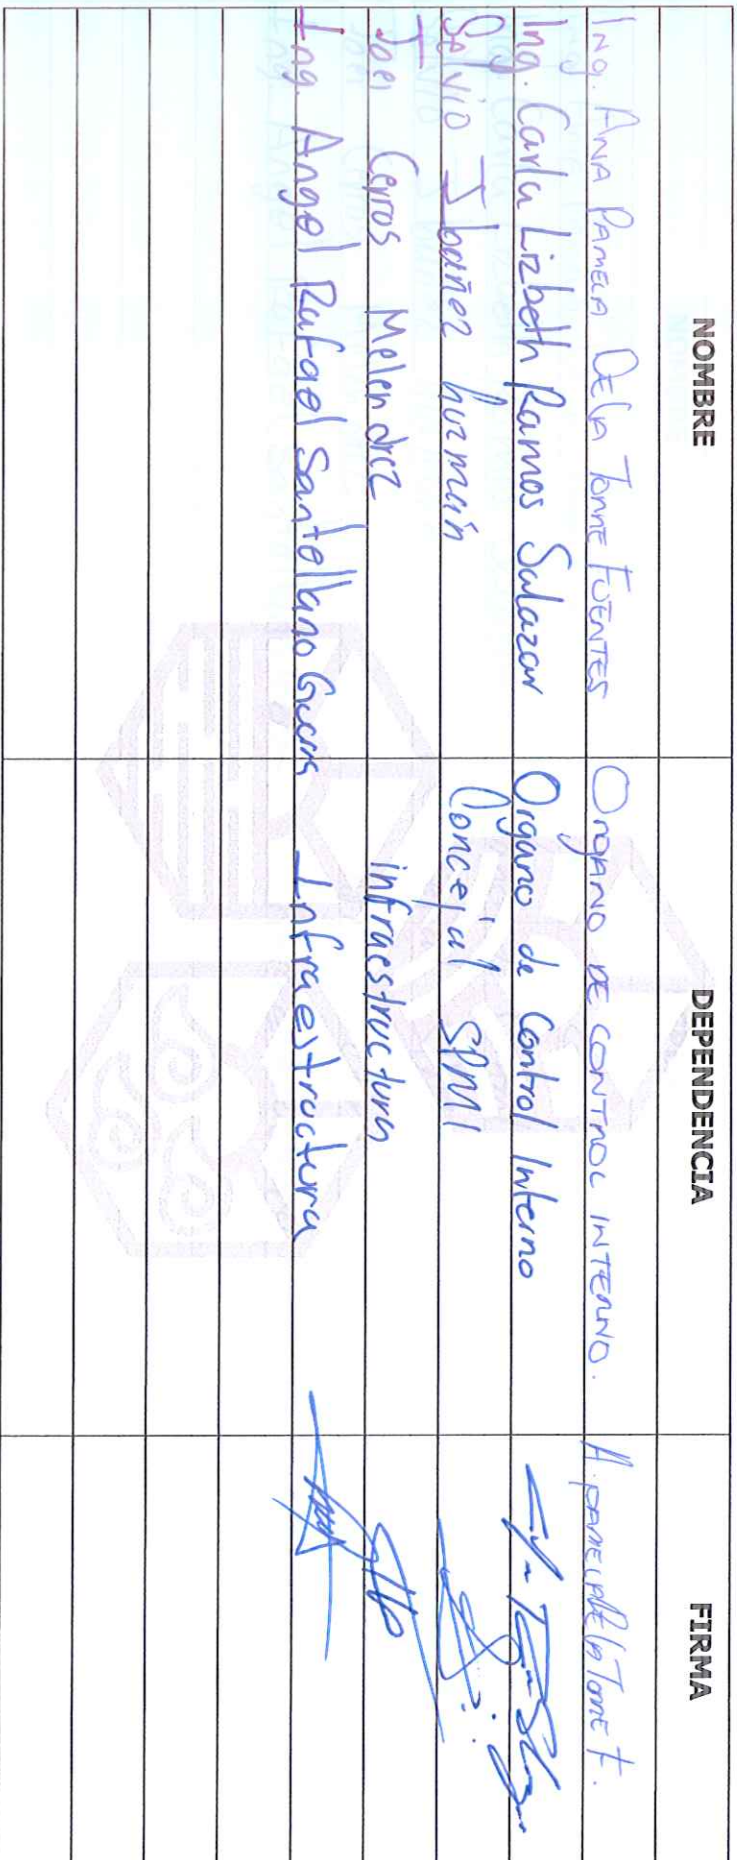 NOMBRE DEPENDENCIA FIRMA
Ing. ANA PAMELA DE LA TORRE FUENTES ORGANO DE CONTROL INTERNO. A. PAMELA DE LA TORRE F.
Ing. Carla Lizbeth Ramos Salazar Organo de Control Interno
Silvio Ibañez Guzmán Concejal SPM1
Joel Cerros Melendrez infraestructura
Ing. Angel Rafael Santellano Guerra Infraestructura